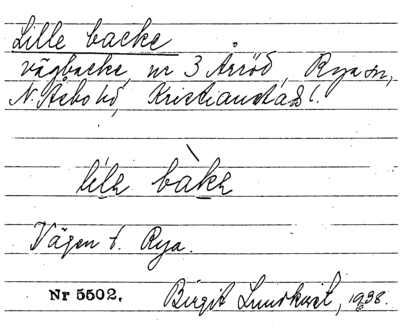 Lille backe
vägbacke, nr 3 Årröd, Rya sn,
N. Åsbo hd, Kristianstads l.
lile bàke
Vägen t. Rya.
Nr 5502. Birgit Lundkvist, 1938.